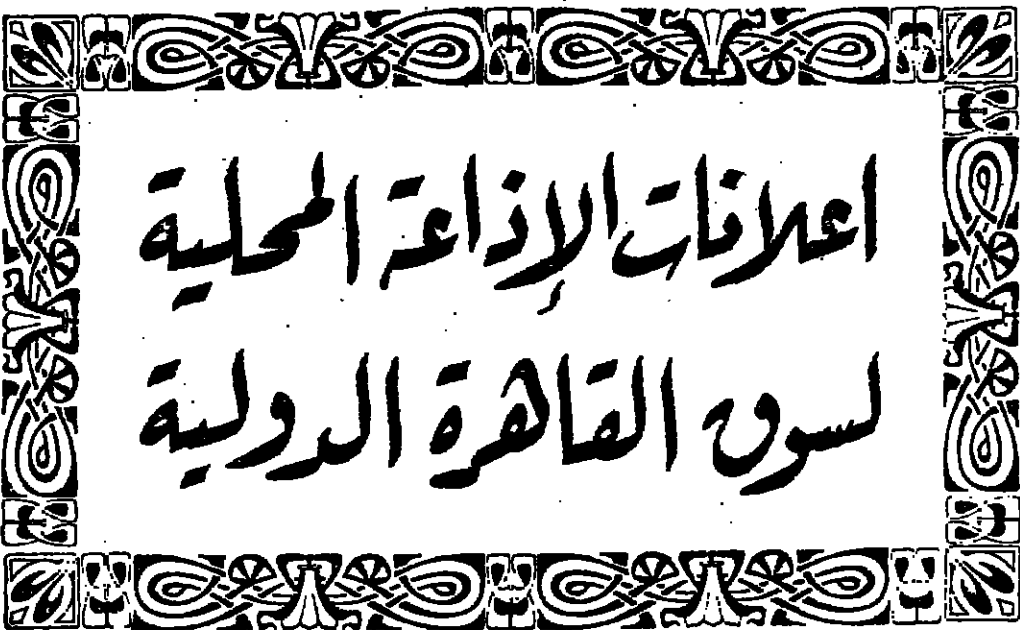 اعلانات الإذاعة المحلية
لسوق القاهرة الدولية